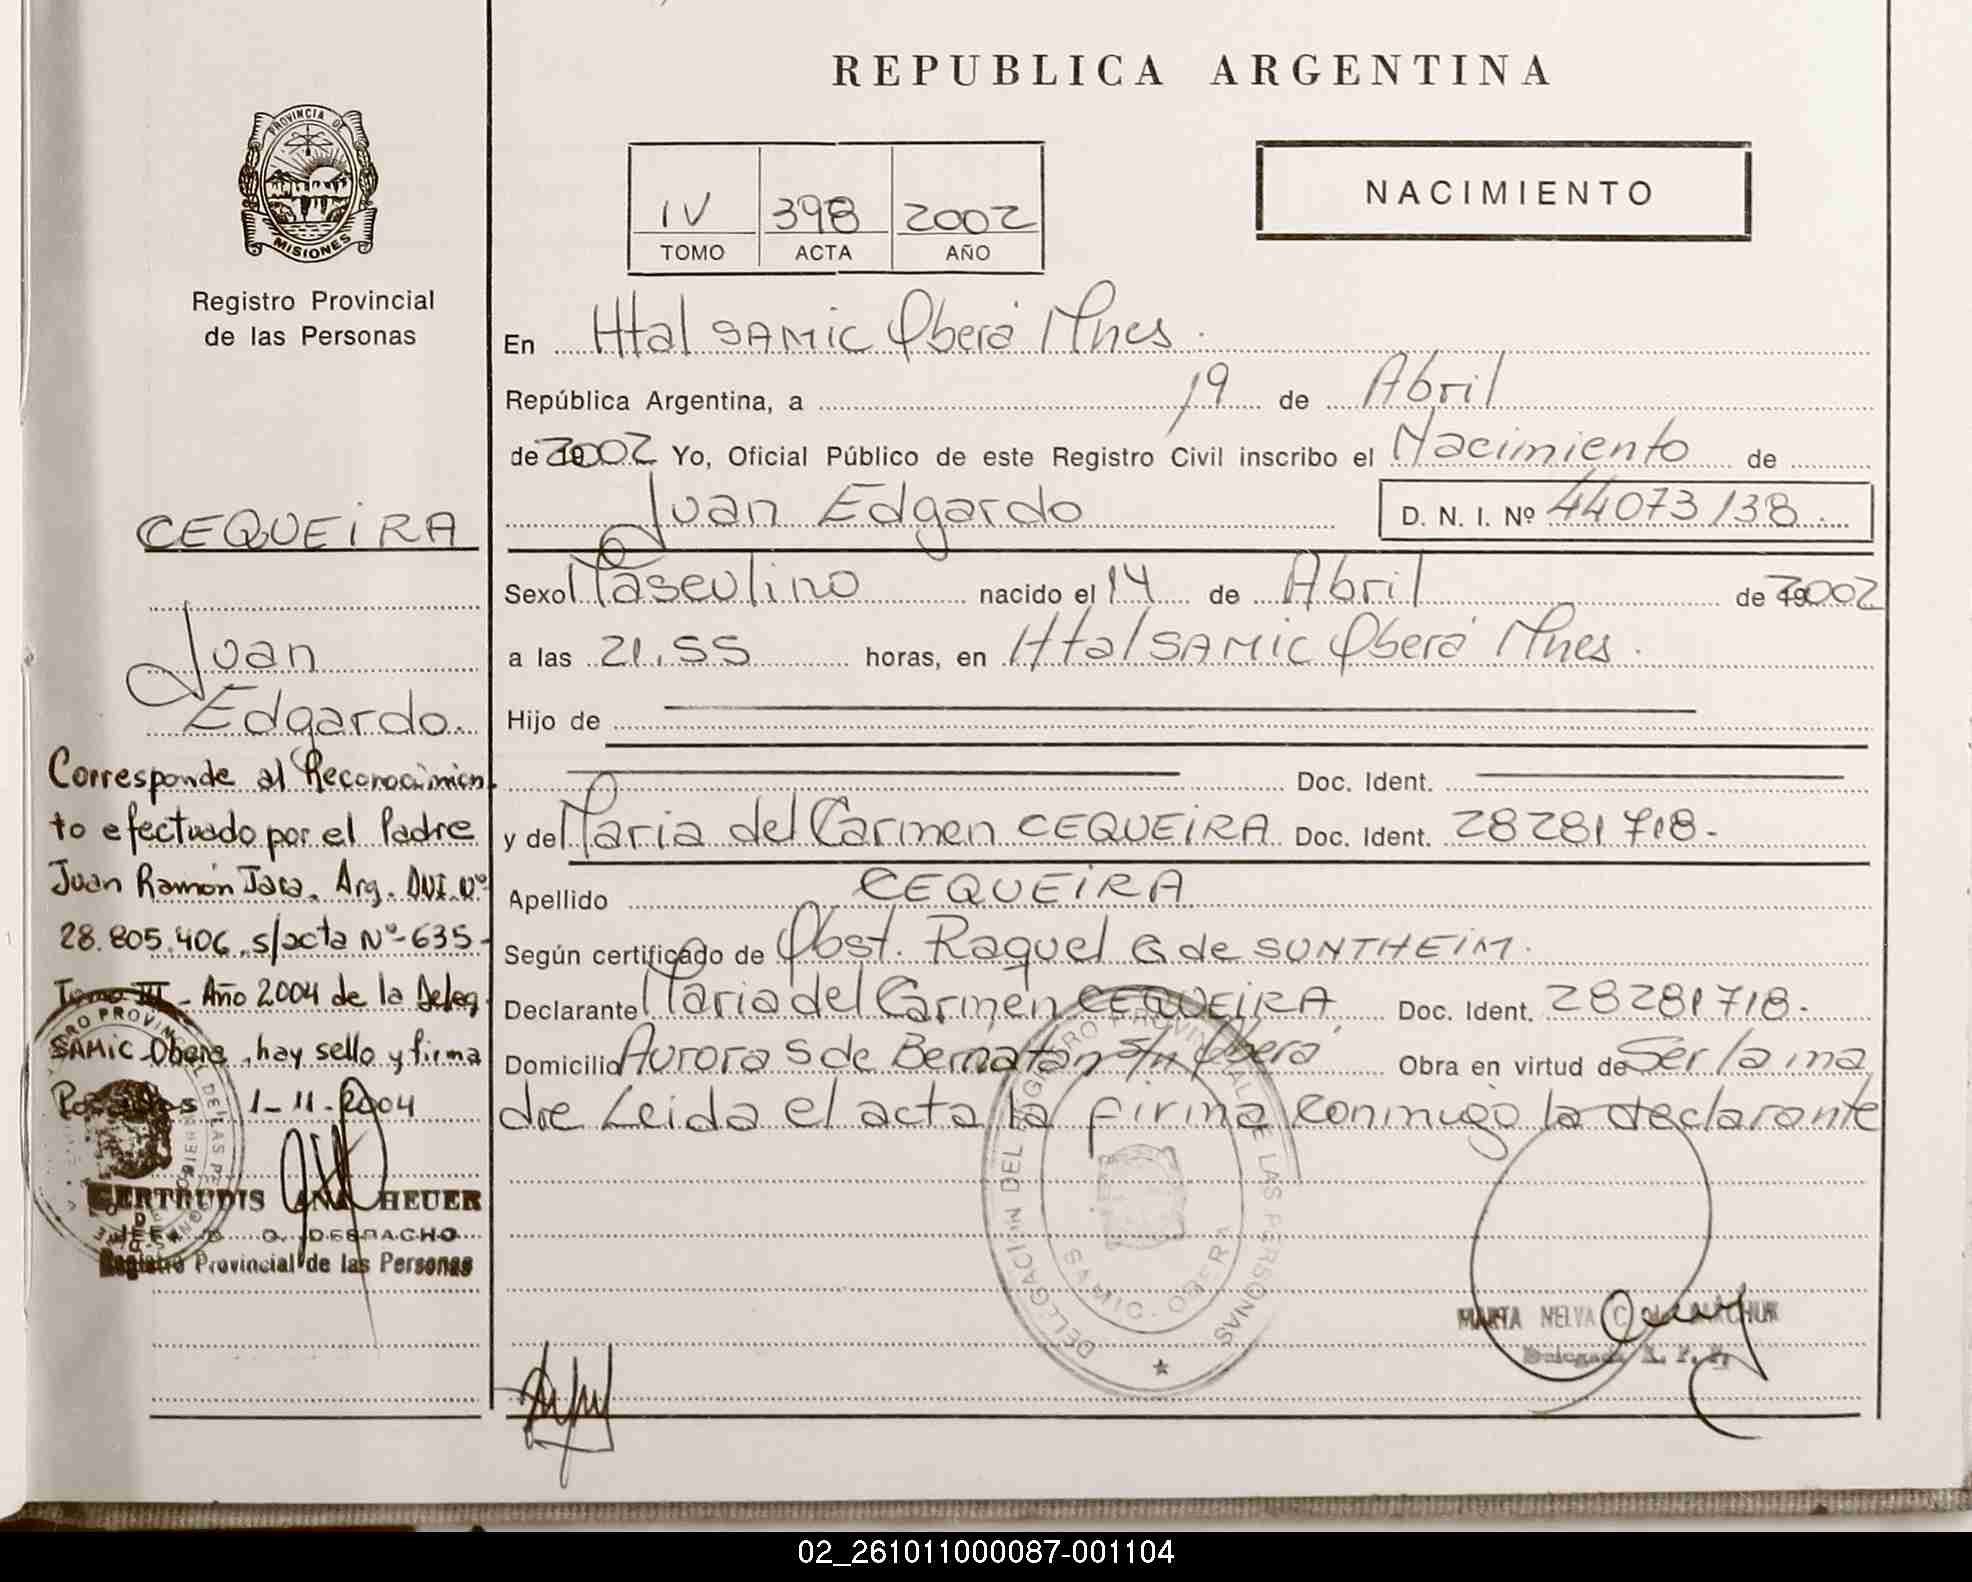 REPUBLICA ARGENTINA
PROVINCIA DE
MISIONES
Registro Provincial
de las Personas
IV 398 2002
TOMO ACTA AÑO
NACIMIENTO
En Htal SAMIC Oberá Mnes.
República Argentina, a 19 de Abril
de 2002 Yo, Oficial Público de este Registro Civil inscribo el Nacimiento de
Juan Edgardo D. N. I. Nº 44073138.
Sexo Masculino nacido el 14 de Abril de 2002
a las 21.55 horas, en Htal SAMIC Oberá Mnes.
Hijo de
Doc. Ident.
y de Maria del Carmen CEQUEIRA Doc. Ident. 28281718-
Apellido CEQUEIRA
Según certificado de Obst. Raquel G de SUNTHEIM.
Declarante Maria del Carmen CEQUEIRA, Doc. Ident. 28281718.
Domicilio Aurora S de Bernatán s/n Oberá Obra en virtud de Ser la ma
dre Leida el acta la firma conmigo la declarante
CEQUEIRA
Juan
Edgardo.
Corresponde al Reconocimien
to efectuado por el Padre
Juan Ramón Jara. Arg. DNI.Nº
28.805.406, s/acta Nº-635-
Tomo III - Año 2004 de la Deleg.
SAMIC-Obera, hay sello y firma
Posadas 1-11-2004
GERTRUDIS ANA HEUER
JEFE D. DESPACHO
Registro Provincial de las Personas
DELEGACIÓN DEL REGISTRO PROVINCIAL DE LAS PERSONAS
SAMIC. OBERA
MARTA NELVA C.
Delegada R. P. P.
02_261011000087-001104